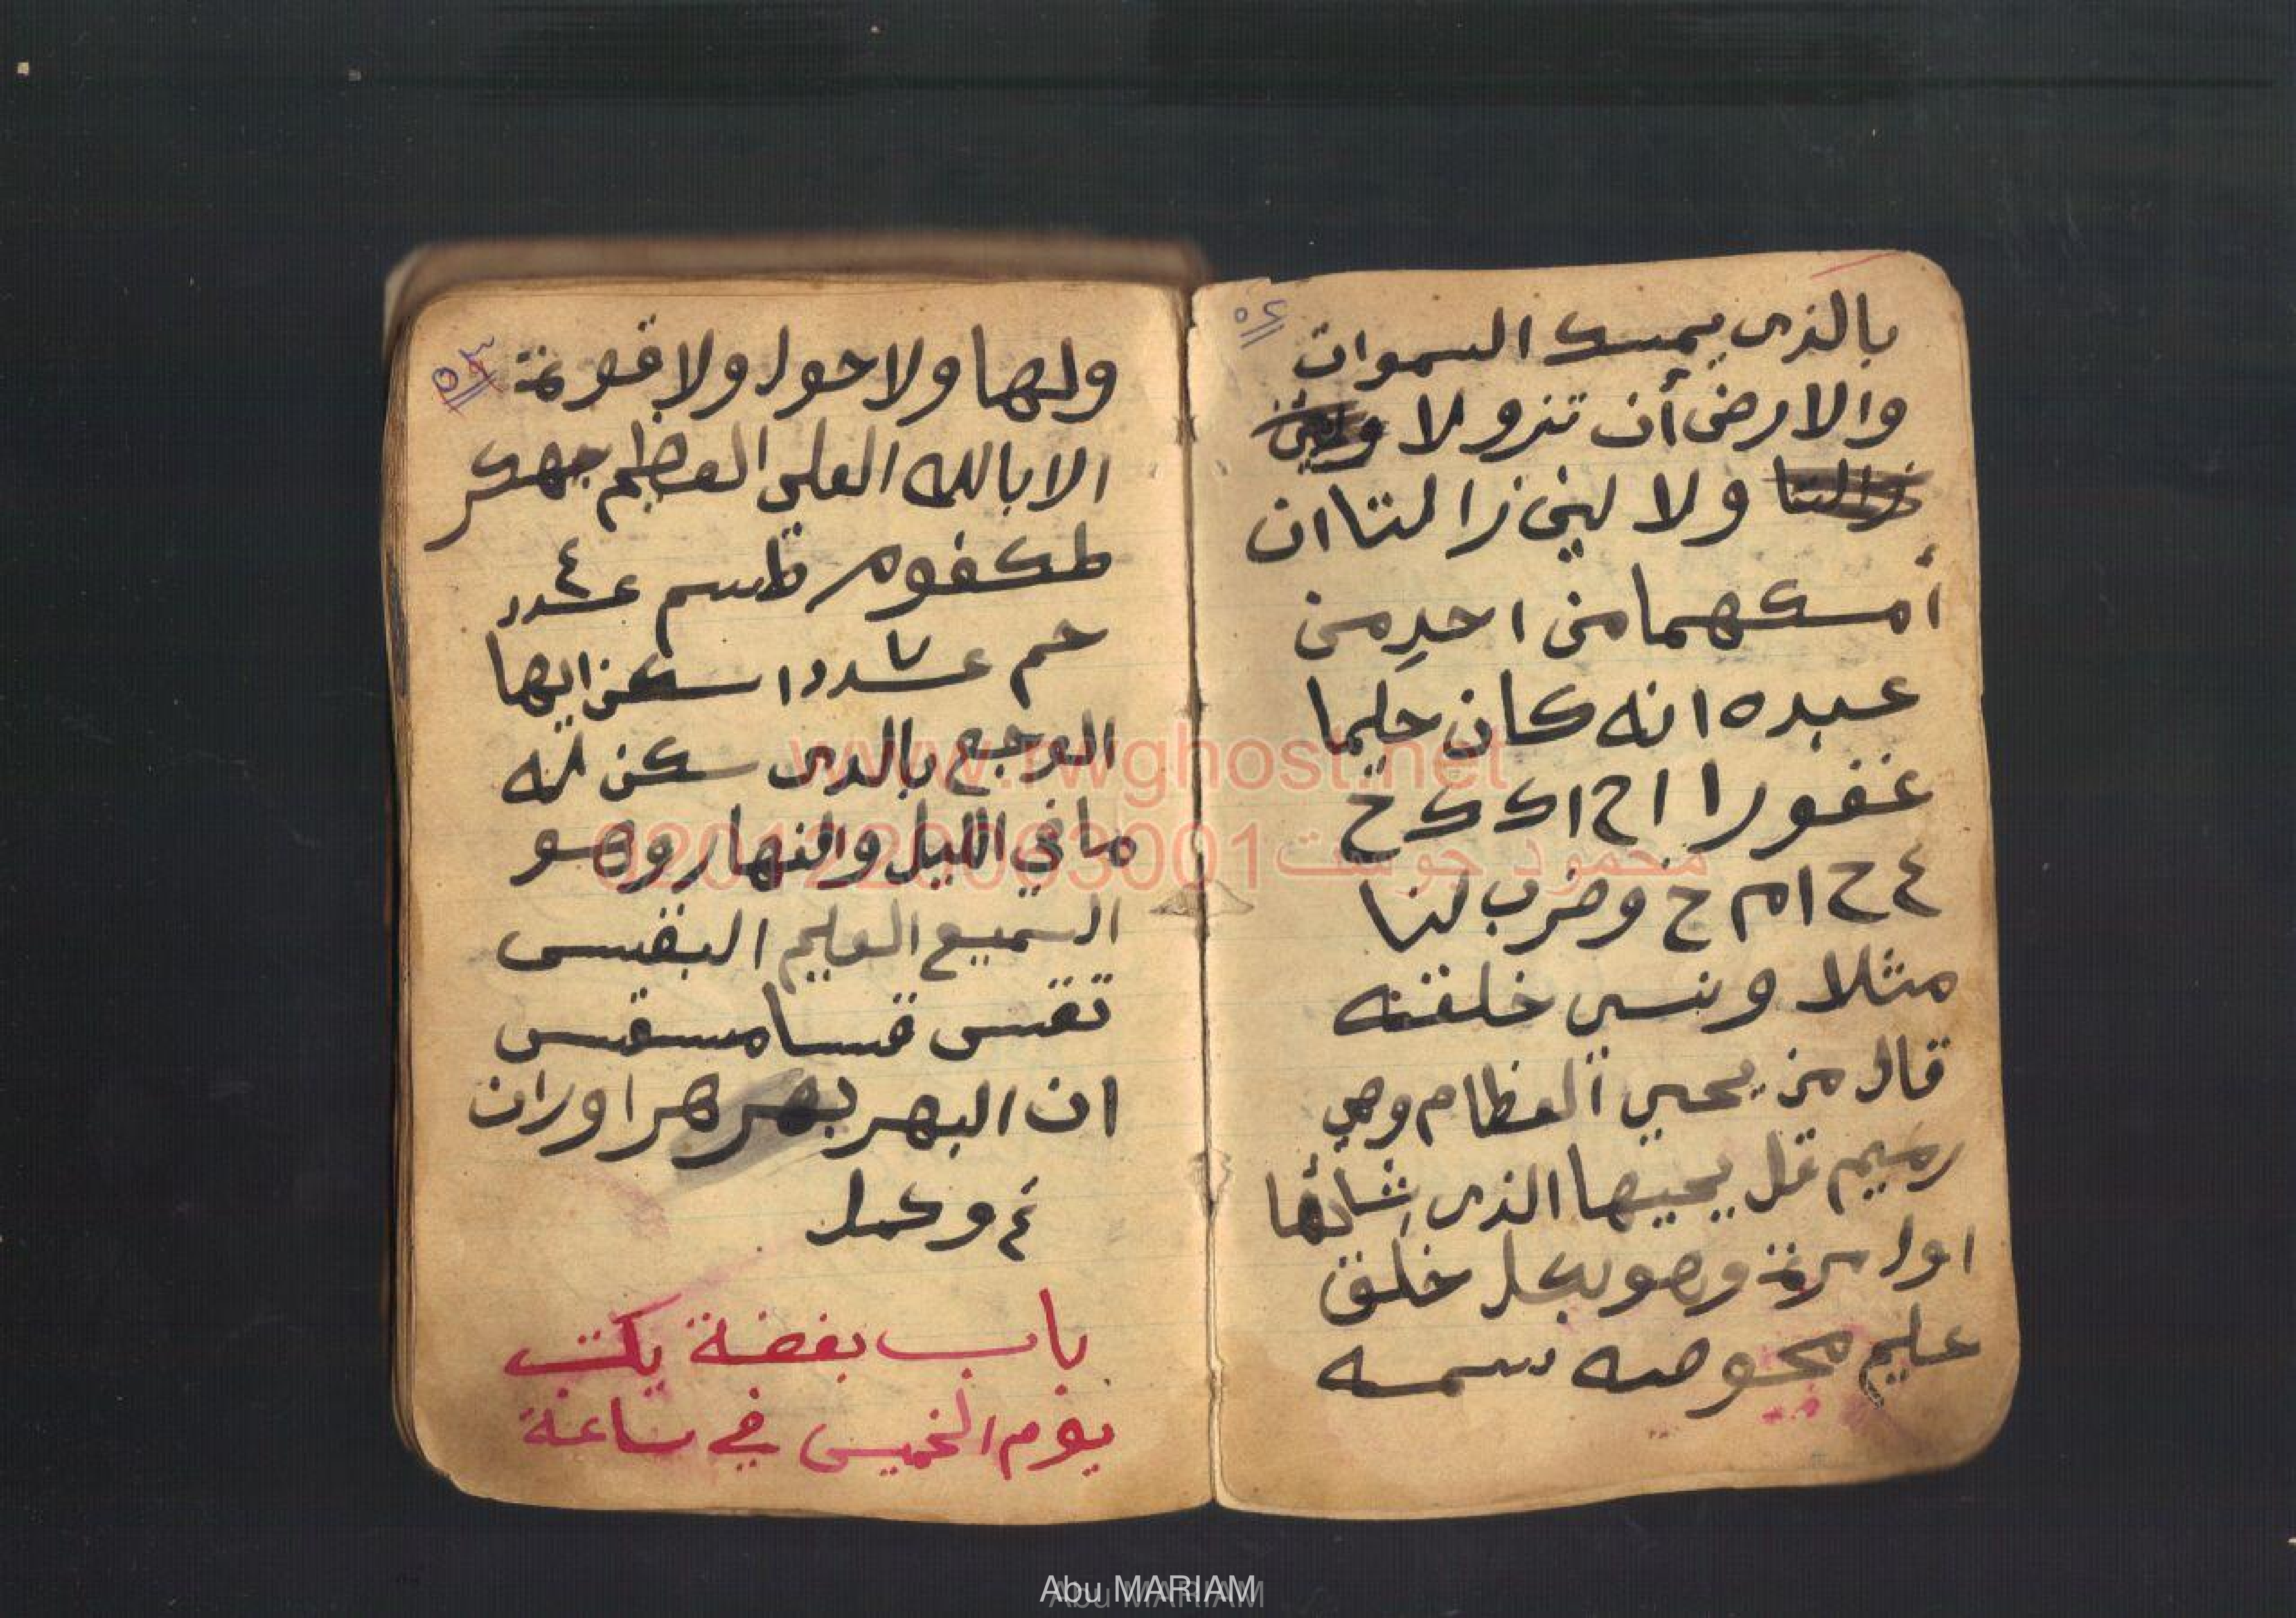 ٥٤
بالذى يمسك السموات
والارض أن تزولا ولين
زالتا ولا لين زالتا ان
أمسكهما من احدِ من
عبده انه كان حليما
غفورا ا ح ا ك ك ح
٤ ح ا م ح وضرب لنا
مثلا ونسي خلقته
قال من يحيي العظام وهي
رميم قل يحييها الذى انشأها
اول مرة وهو بكل خلق
عليم
ولها ولا حول ولا قوة
الا بالله العلى العظيم
طسم عدد ٤
حم عدد ٧ اسكن ايها
الوجع بالذى سكن له
ما في الليل والنهار وهو
السميع العليم
ان البهر بهر هراوران
تم وكمل
باب بغضة يكتب
يوم الخميس في ساعة
www.rwghost.net
محمود جوست 0201220063001
Abu MARIAM